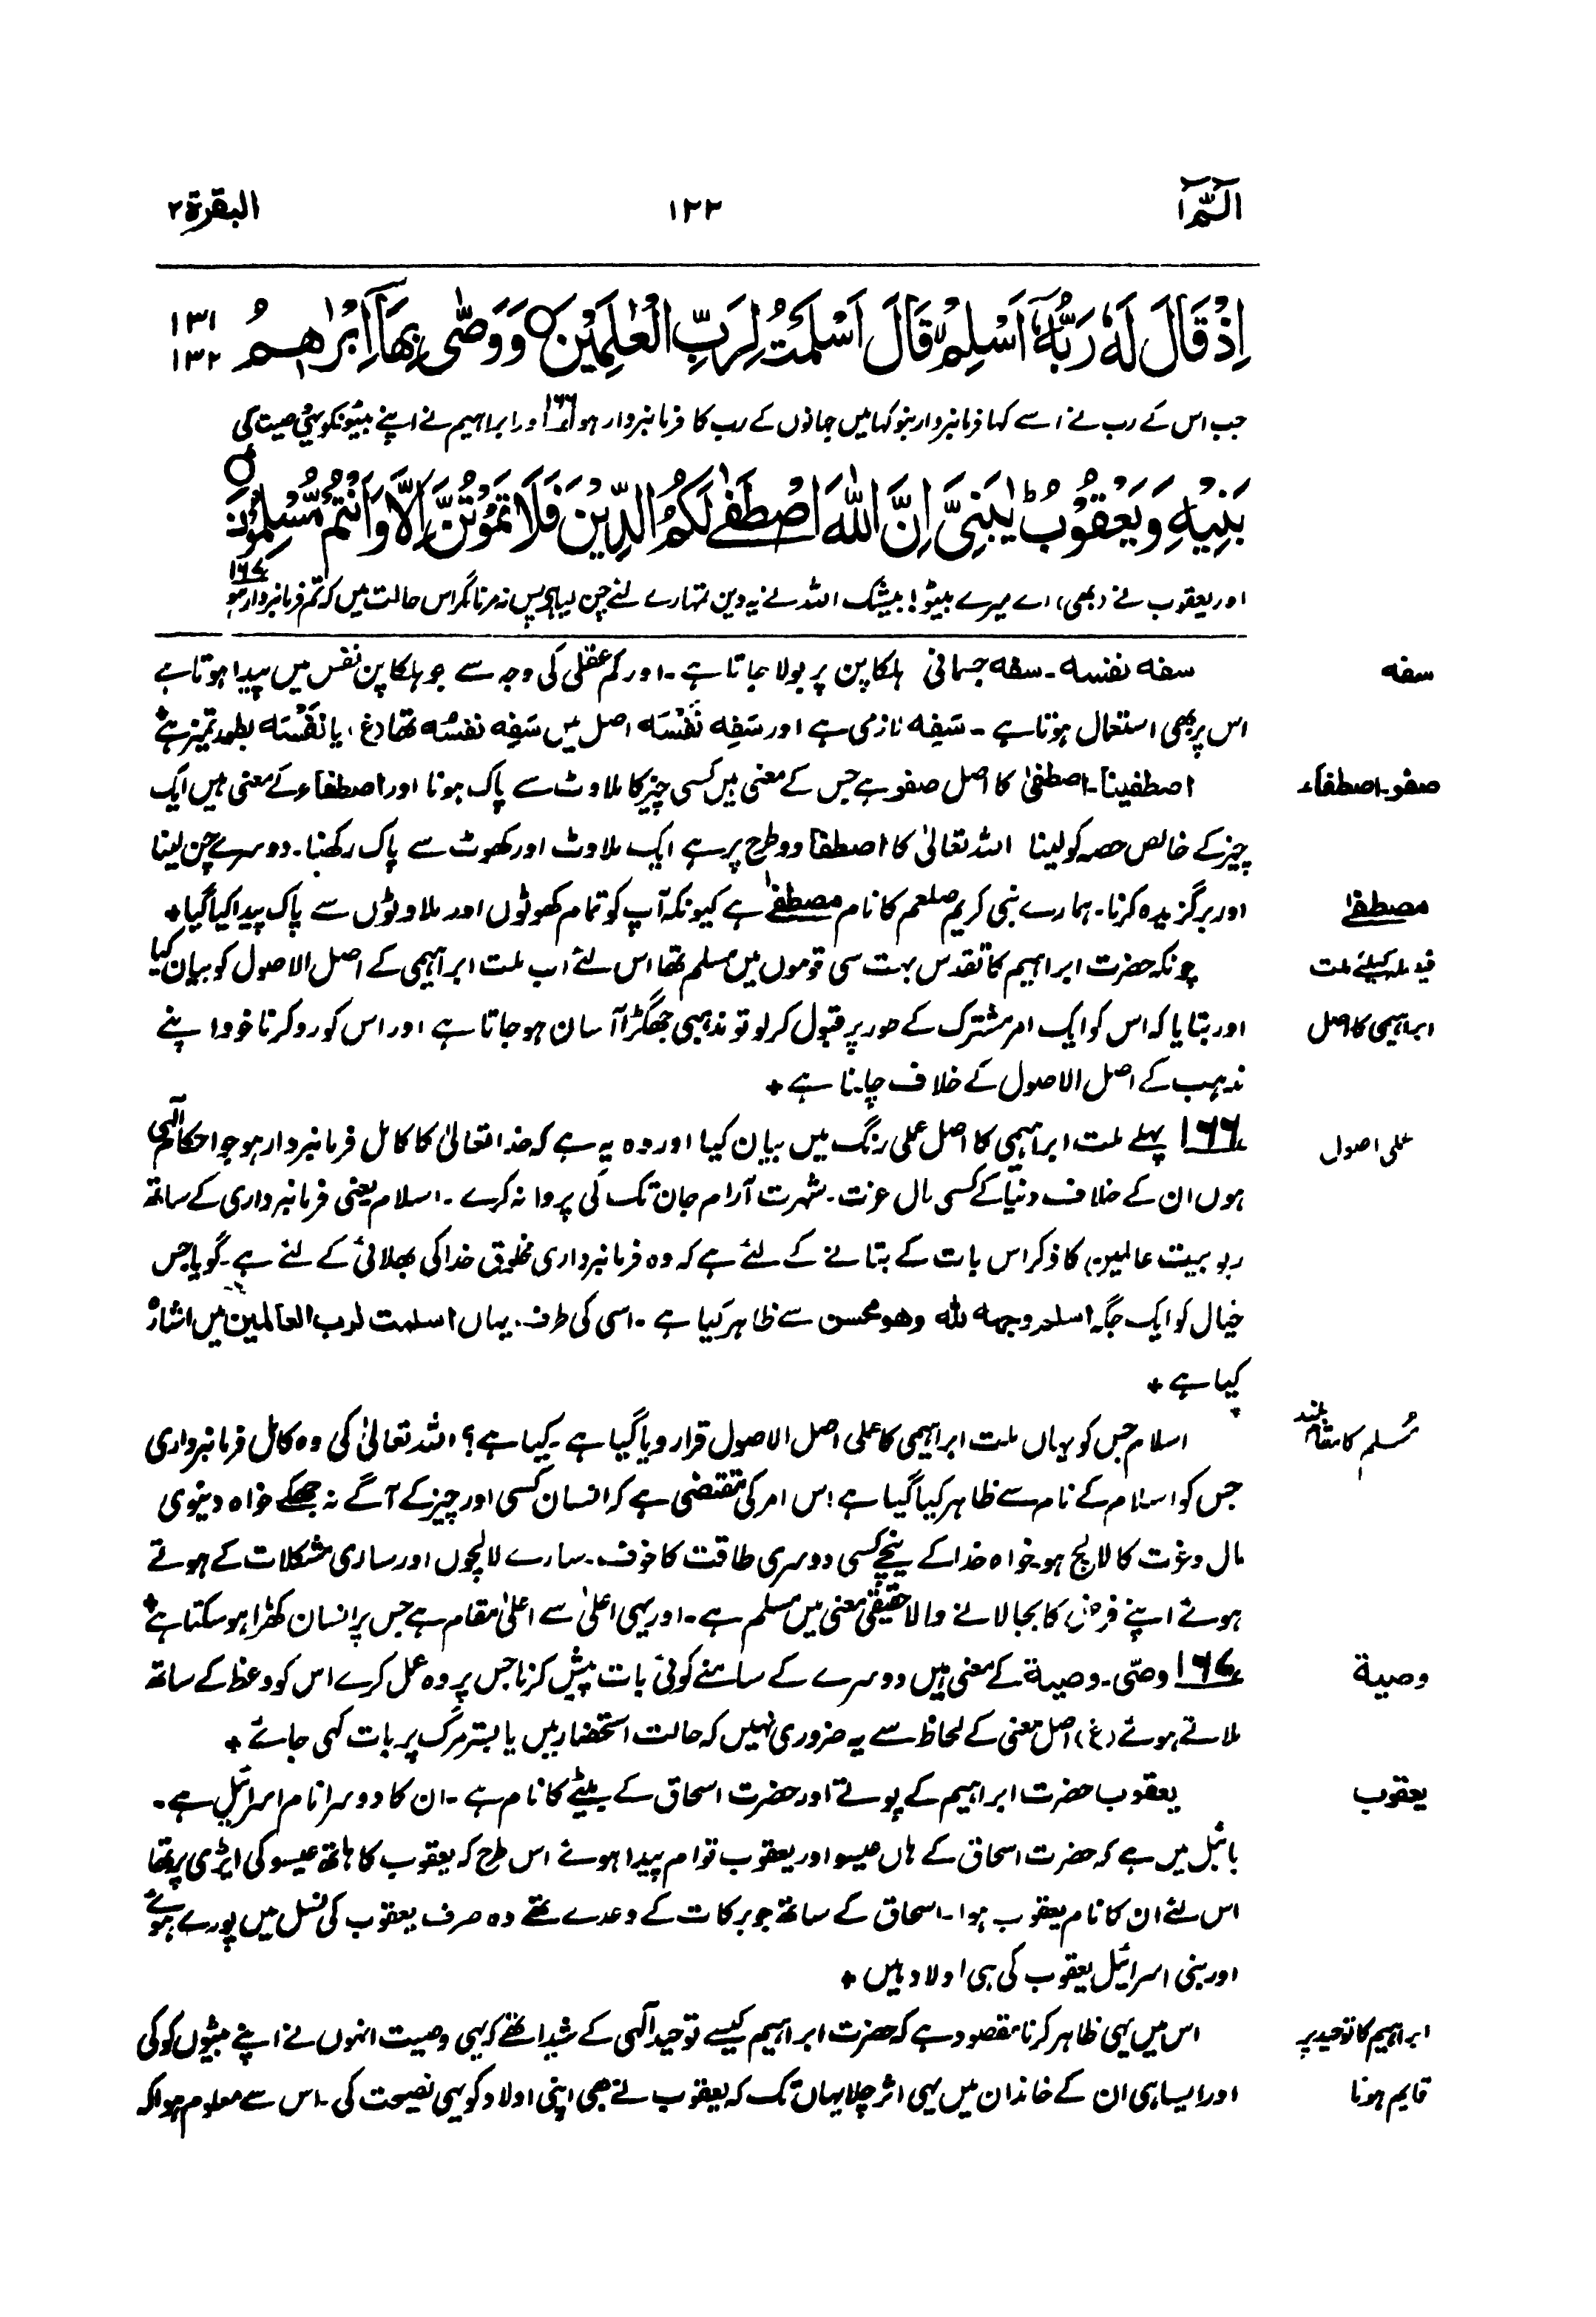 الٓمّٓ ١
١٢٢
البقرة ٢
اِذْ قَالَ لَهٗ رَبُّهٗٓ اَسْلِمْ ۙ قَالَ اَسْلَمْتُ لِرَبِّ الْعٰلَمِيْنَ ○ وَ وَصّٰى بِهَآ اِبْرٰهٖمُ
١٣١
١٣٢
جب اس کے رب نے اسے کہا فرمانبردار بنو کہا میں جہانوں کے رب کا فرمانبردار ہوں ١٦٦ اور ابراہیم نے اپنے بیٹونکو یہی وصیت کی
بَنِيْهِ وَ يَعْقُوْبُ ؕ يٰبَنِيَّ اِنَّ اللّٰهَ اصْطَفٰى لَكُمُ الدِّيْنَ فَلَا تَمُوْتُنَّ اِلَّا وَ اَنْتُمْ مُّسْلِمُوْنَ ○
اور یعقوب نے (بھی) اے میرے بیٹو! بیشک اللہ نے یہ دین تمہارے لئے چن لیا ہے پس نہ مرنا مگر اس حالت میں کہ تم فرمانبردار ہو ١٦٧
سفه
سفه نفسه ۔ سفه جسمانی ہلکا پن پر بولا جاتا ہے ۔ اور کم عقلی کی وجہ سے جو ہلکا پن نفس میں پیدا ہوتا ہے
اس پر بھی استعمال ہوتا ہے ۔ سَفِه لازمی ہے اور سَفِه نَفْسَه اصل میں سَفِه نفسُه تھا (غ) ، یا نَفْسَه بطور تمیز ہے ٭
صفو ۔ اصطفاء
اصطفینا ۔ اصطفیٰ کا اصل صفو ہے جس کے معنی ہیں کسی چیز کا ملاوٹ سے پاک ہونا اور اصطفاء کے معنی ہیں ایک
چیز کے خالص حصہ کو لینا اللہ تعالیٰ کا اصطفا دو طرح پر ہے ایک ملاوٹ اور کھوٹ سے پاک رکھنا ۔ دوسرے چن لینا
مصطفےٰ
اور برگزیدہ کرنا ۔ ہمارے نبی کریم صلعم کا نام مصطفےٰ ہے کیونکہ آپ کو تمام کھوٹوں اور ملاوٹوں سے پاک پیدا کیا گیا ٭
فیصلہ کیلئے ملت
چونکہ حضرت ابراہیم کا تقدس بہت سی قوموں میں مسلم تھا اس لئے اب ملت ابراہیمی کے اصل الاصول کو بیان کیا
ابراہیمی کا اصل
اور بتایا کہ اس کو ایک امر مشترک کے طور پر قبول کر لو تو مذہبی جھگڑا آسان ہو جاتا ہے اور اس کو رد کرنا خود اپنے
مذہب کے اصل الاصول کے خلاف چلنا ہے ٭
عملی اصول
١٦٦ پہلے ملت ابراہیمی کا اصل عملی رنگ میں بیان کیا اور وہ یہ ہے کہ خدا تعالیٰ کا کامل فرمانبردار ہو جو احکام الٰہی
ہوں ان کے خلاف دنیا کے کسی مال عزت ۔ شہرت آرام جان تک کی پروا نہ کرے ۔ اسلام یعنی فرمانبرداری کے ساتھ
ربوبیت عالمین کا ذکر اس بات کے بتانے کے لئے ہے کہ وہ فرمانبرداری مخلوق خدا کی بھلائی کے لئے ہے ۔ گویا جس
خیال کو ایک جگہ اسلم وجهه لله وهو محسن سے ظاہر کیا ہے ۔ اسی کی طرف یہاں اسلمت لرب العالمین میں اشارہ
کیا ہے ٭
مُسلم کا بلند مقام
اسلام جس کو یہاں ملت ابراہیمی کا عملی اصل الاصول قرار دیا گیا ہے ۔ کیا ہے ؟ اللہ تعالیٰ کی وہ کامل فرمانبرداری
جس کو اسلام کے نام سے ظاہر کیا گیا ہے اس امر کی مقتضی ہے کہ انسان کسی اور چیز کے آگے نہ جھکے خواہ دنیوی
مال و عزت کا لالچ ہو خواہ خدا کے نیچے کسی دوسری طاقت کا خوف ۔ سارے لالچوں اور ساری مشکلات کے ہوتے
ہوئے اپنے فرض کا بجا لانے والا حقیقی معنی میں مسلم ہے ۔ اور یہی اعلیٰ سے اعلیٰ مقام ہے جس پر انسان کھڑا ہو سکتا ہے ٭
وصیة
١٦٧ وصّی ۔ وصیة کے معنی ہیں دوسرے کے سامنے کوئی بات پیش کرنا جس پر وہ عمل کرے اس کو وعظ کے ساتھ
ملاتے ہوئے (غ) اصل معنی کے لحاظ سے یہ ضروری نہیں کہ حالت استحضار میں یا بستر مرگ پر بات کہی جائے ٭
یعقوب
یعقوب حضرت ابراہیم کے پوتے اور حضرت اسحاق کے بیٹے کا نام ہے ۔ ان کا دوسرا نام اسرائیل ہے ۔
بائبل میں ہے کہ حضرت اسحاق کے ہاں عیسو اور یعقوب توام پیدا ہوئے اس طرح کہ یعقوب کا ہاتھ عیسو کی ایڑی پر تھا
اس لئے ان کا نام یعقوب ہوا ۔ اسحاق کے ساتھ جو برکات کے وعدے تھے وہ صرف یعقوب کی نسل میں پورے ہوئے
اور بنی اسرائیل یعقوب کی ہی اولاد ہیں ٭
ابراہیم کا توحید پر
اس میں یہی ظاہر کرنا مقصود ہے کہ حضرت ابراہیم کیسے توحید الٰہی کے شیدا تھے کہ یہی وصیت انہوں نے اپنے بیٹوں کو کی
قایم ہونا
اور ایسا ہی ان کے خاندان میں یہی اثر چلا یہاں تک کہ یعقوب نے بھی اپنی اولاد کو یہی نصیحت کی ۔ اس سے معلوم ہوا کہ